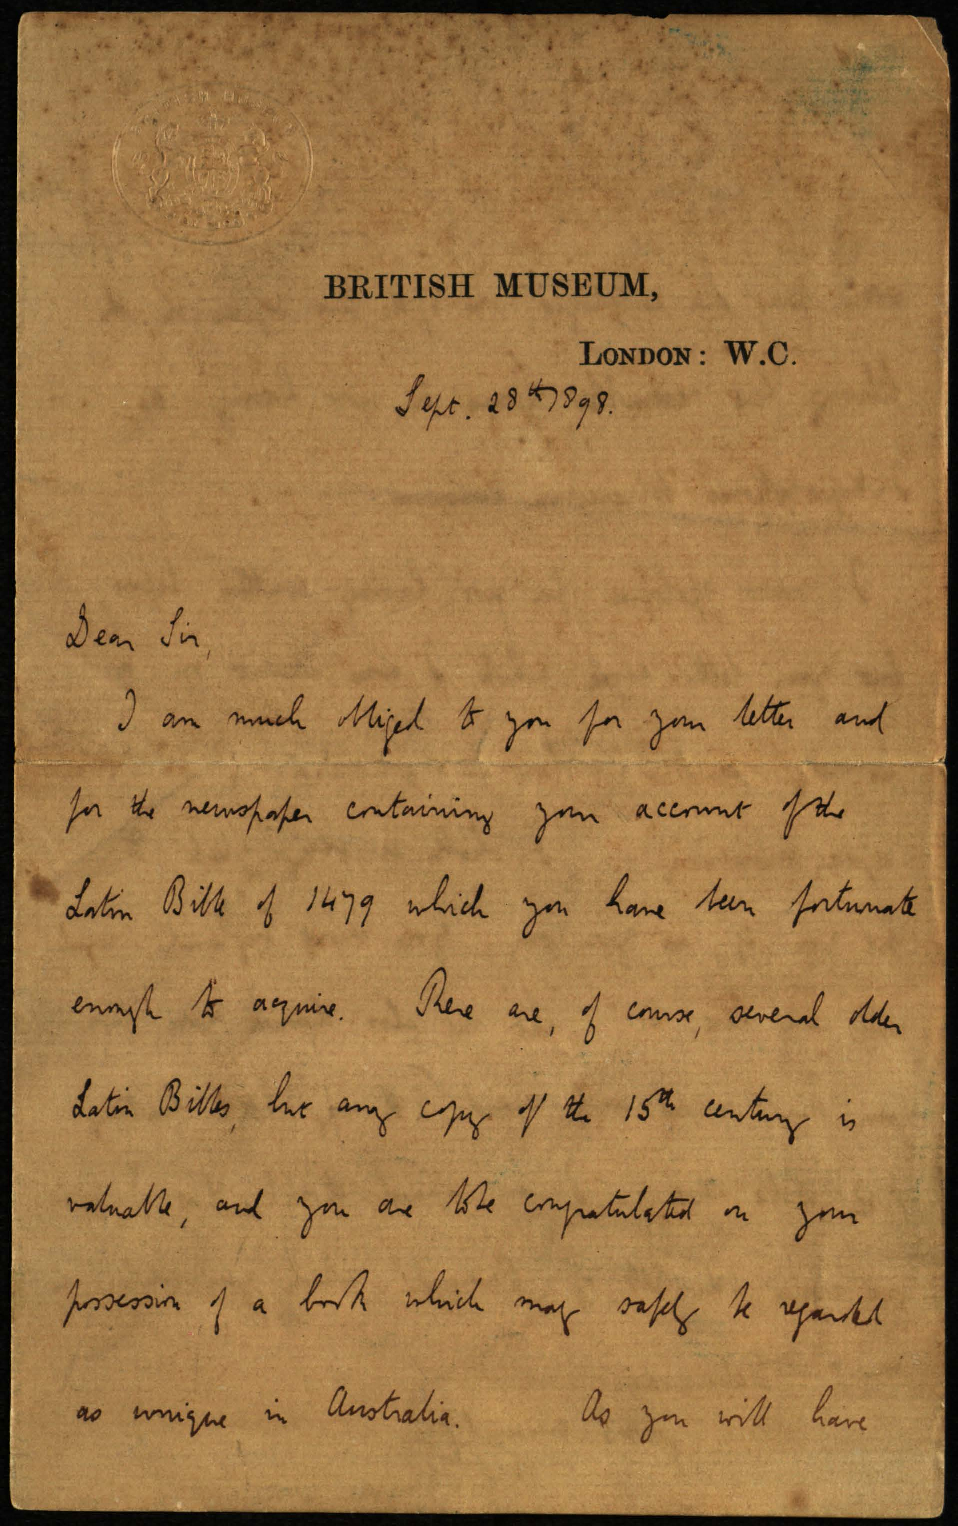 BRITISH MUSEUM,
LONDON: W.C.
Sept. 28th 1898.
Dear Sir,
I am much obliged to you for your letter and
for the newspaper containing your account of the
Latin Bible of 1479 which you have been fortunate
enough to acquire. There are, of course, several older
Latin Bibles, but any copy of the 15th century is
valuable, and you are to be congratulated on your
possession of a book which may safely be regarded
as unique in Australia. As you will have